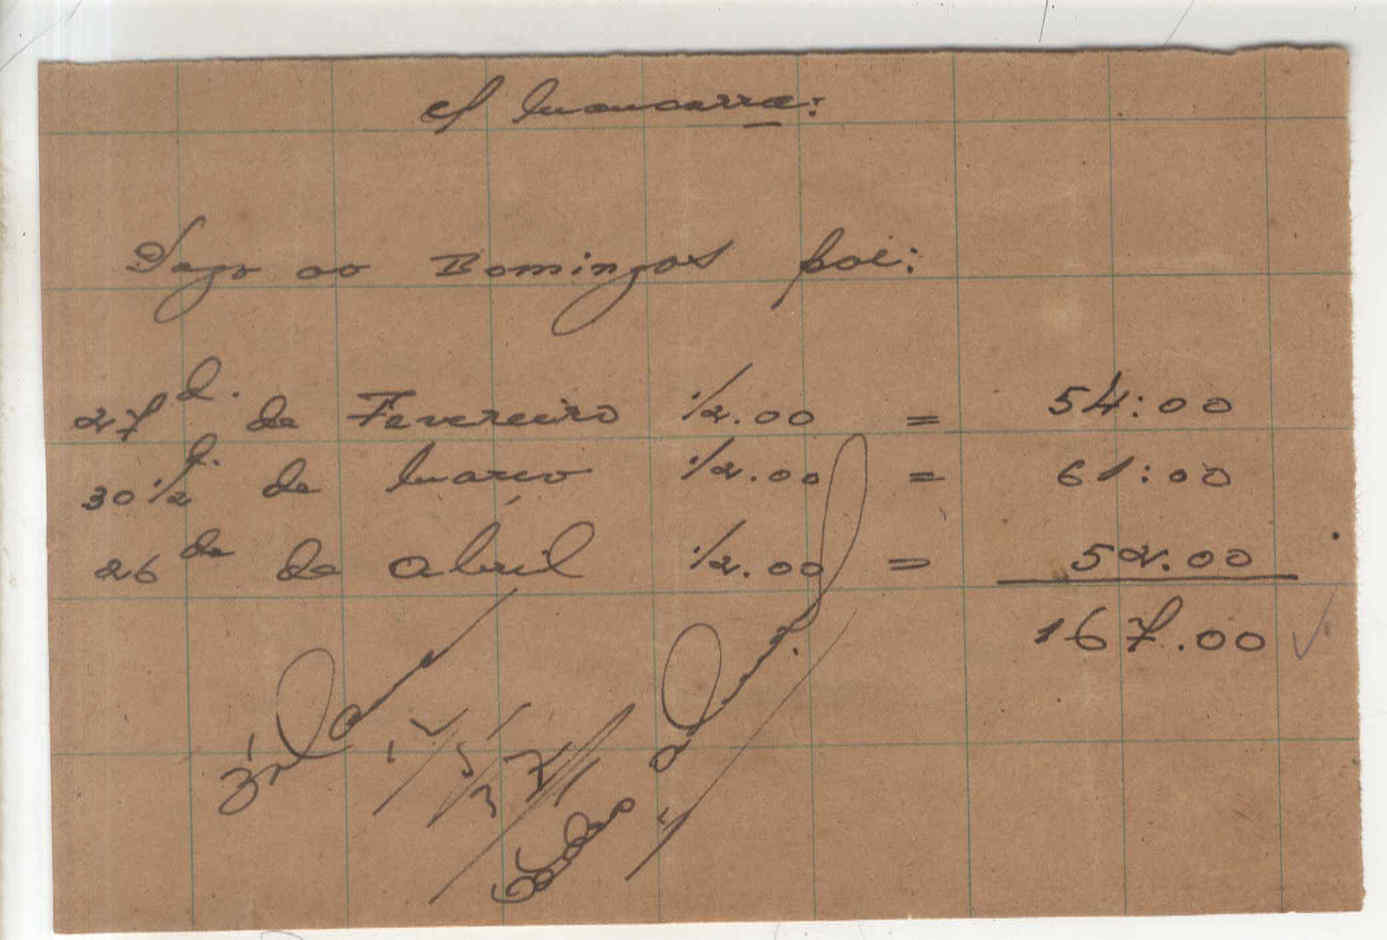 A Mancarra:
Pago ao Domingos foi:
27 d. de Fevereiro 1/2.00 = 54:00
30 1/2 d. de Março 1/2.00 = 61:00
26 de de Abril 1/2.00 = 52.00
167.00
12/5/37